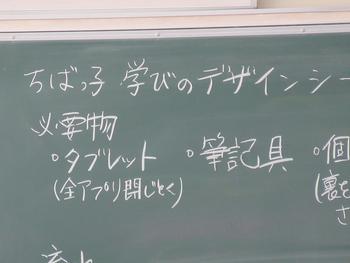 ちばっ子 学びのデザインシー
必要物
・タブレット ・筆記具 ・個
(全アプリ閉じとく) (裏を
さ